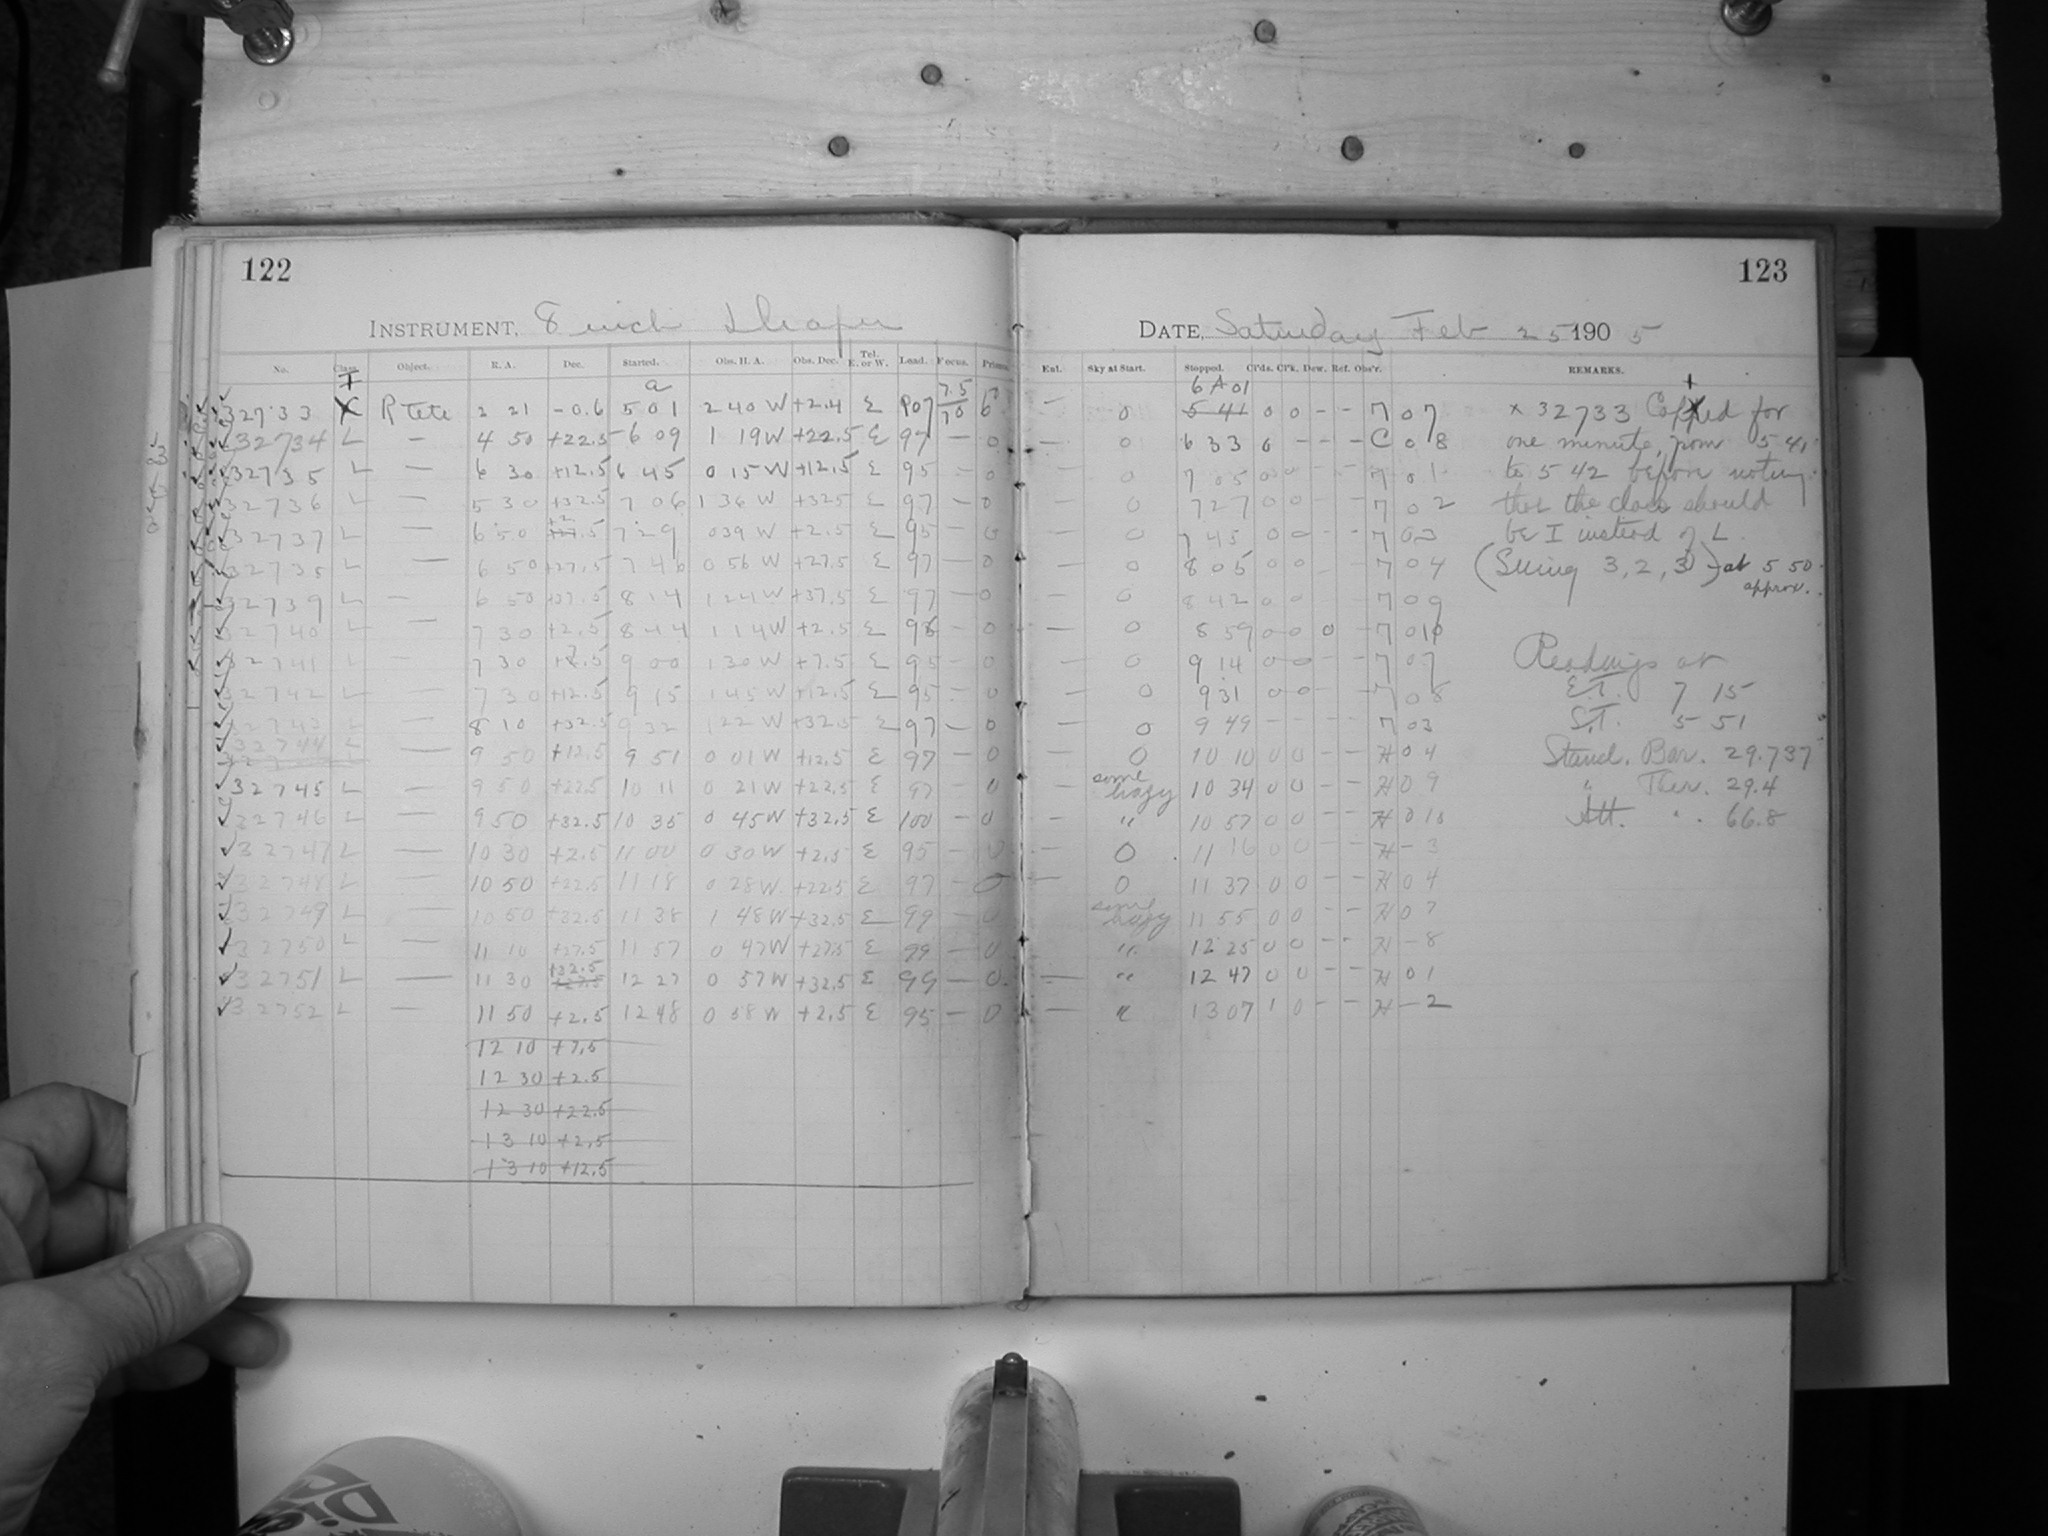 122
INSTRUMENT, 8 inch Draper
No. Class. Object. R. A. Dec. Started. Obs. H. A. Obs. Dec. Tel. E. or W. Load. Focus. Prisms.
I a 7.5
32733 X R Ceti 2 21 -0.6 5 01 2 40 W +2.4 E 10
32734 L — 4 50 +22.5 6 09 1 19 W +22.5 E 97 — 0
32735 L — 6 30 +12.5 6 45 0 15 W +12.5 E 95 — 0
32736 L — 5 30 +32.5 7 06 1 36 W +32.5 E 97 — 0
32737 L — 6 50 7 29 0 39 W +2.5 E 95 — 0
L — 6 50 +27.5 7 46 0 56 W +27.5 E 97 — 0
32739 L — 6 50 +37.5 8 14 1 24 W +37.5 E 97 — 0
32740 L — 7 30 +2.5 8 44 1 14 W +2.5 E — 0
32741 L — 7 30 9 00 1 30 W +7.5 E 95 — 0
32742 L — 7 30 +12.5 9 15 1 45 W +12.5 E 95 — 0
32743 L — 8 10 +32.5 9 32 1 22 W +32.5 E 97 — 0
32744 L — 9 50 +12.5 9 51 0 01 W +12.5 E 97 — 0
32745 L — 9 50 +22.5 10 11 0 21 W +22.5 E 97 — 0
32746 L — 9 50 +32.5 10 35 0 45 W +32.5 E 100 — 0
32747 L — 10 30 +2.5 11 00 0 30 W +2.5 E 95 — 0
32748 L — 10 50 +22.5 11 18 0 28 W +22.5 E 97 — 0
32749 L — 10 50 +32.5 11 38 1 48 W +32.5 E 99 — 0
32750 L — 11 10 +27.5 11 57 0 47 W +27.5 E 99 — 0
+32.5
32751 L — 11 30 12 27 0 57 W +32.5 E 99 — 0
32752 L — 11 50 +2.5 12 48 0 58 W +2.5 E 95 — 0
12 10 +7.5
12 30 +2.5
12 30 +22.5
13 10 +2.5
13 10 +12.5
123
DATE, Saturday Feb 25 1905
Ext. Sky at Start. Stopped. Cl'ds. Cl'k. Dew. Ref. Obs'r. REMARKS.
6 A 01
— 0 5 41 0 0 - - 7 07 x 32733 for
— 0 6 33 0 - - - C 08 one minute, from 5 41
— 0 7 05 0 0 - - 7 01 to 5 42 before noting
— 0 7 27 0 0 - - 7 02 that the class should
— 0 7 45 0 0 - - 7 03 be I instead of L.
— 0 8 05 0 0 - - 7 04 (Seeing 3, 2, 3) at 5 50
approx.
— 0 8 42 0 0 - - 7 09
— 0 8 59 0 0 0 - 7
— 0 9 14 0 0 - - 7 07 Readings at
— 0 9 31 0 0 - - 7 08 E.T. 7 15
— 0 9 49 - - - - 7 03 S.T. 5 51
— 0 10 10 0 0 - - H 0 4 Stand. Bar. 29.737
— some hazy 10 34 0 0 - - H 0 9 " Ther. 29.4
— " 10 57 0 0 - - H 0 10 Att. " 66.8
— 0 11 16 0 0 - - H - 3
— 0 11 37 0 0 - - H 0 4
some hazy 11 55 0 0 - - H 0 7
" 12 25 0 0 - - H - 8
— " 12 47 0 0 - - H 0 1
— " 13 07 1 0 - - H - 2